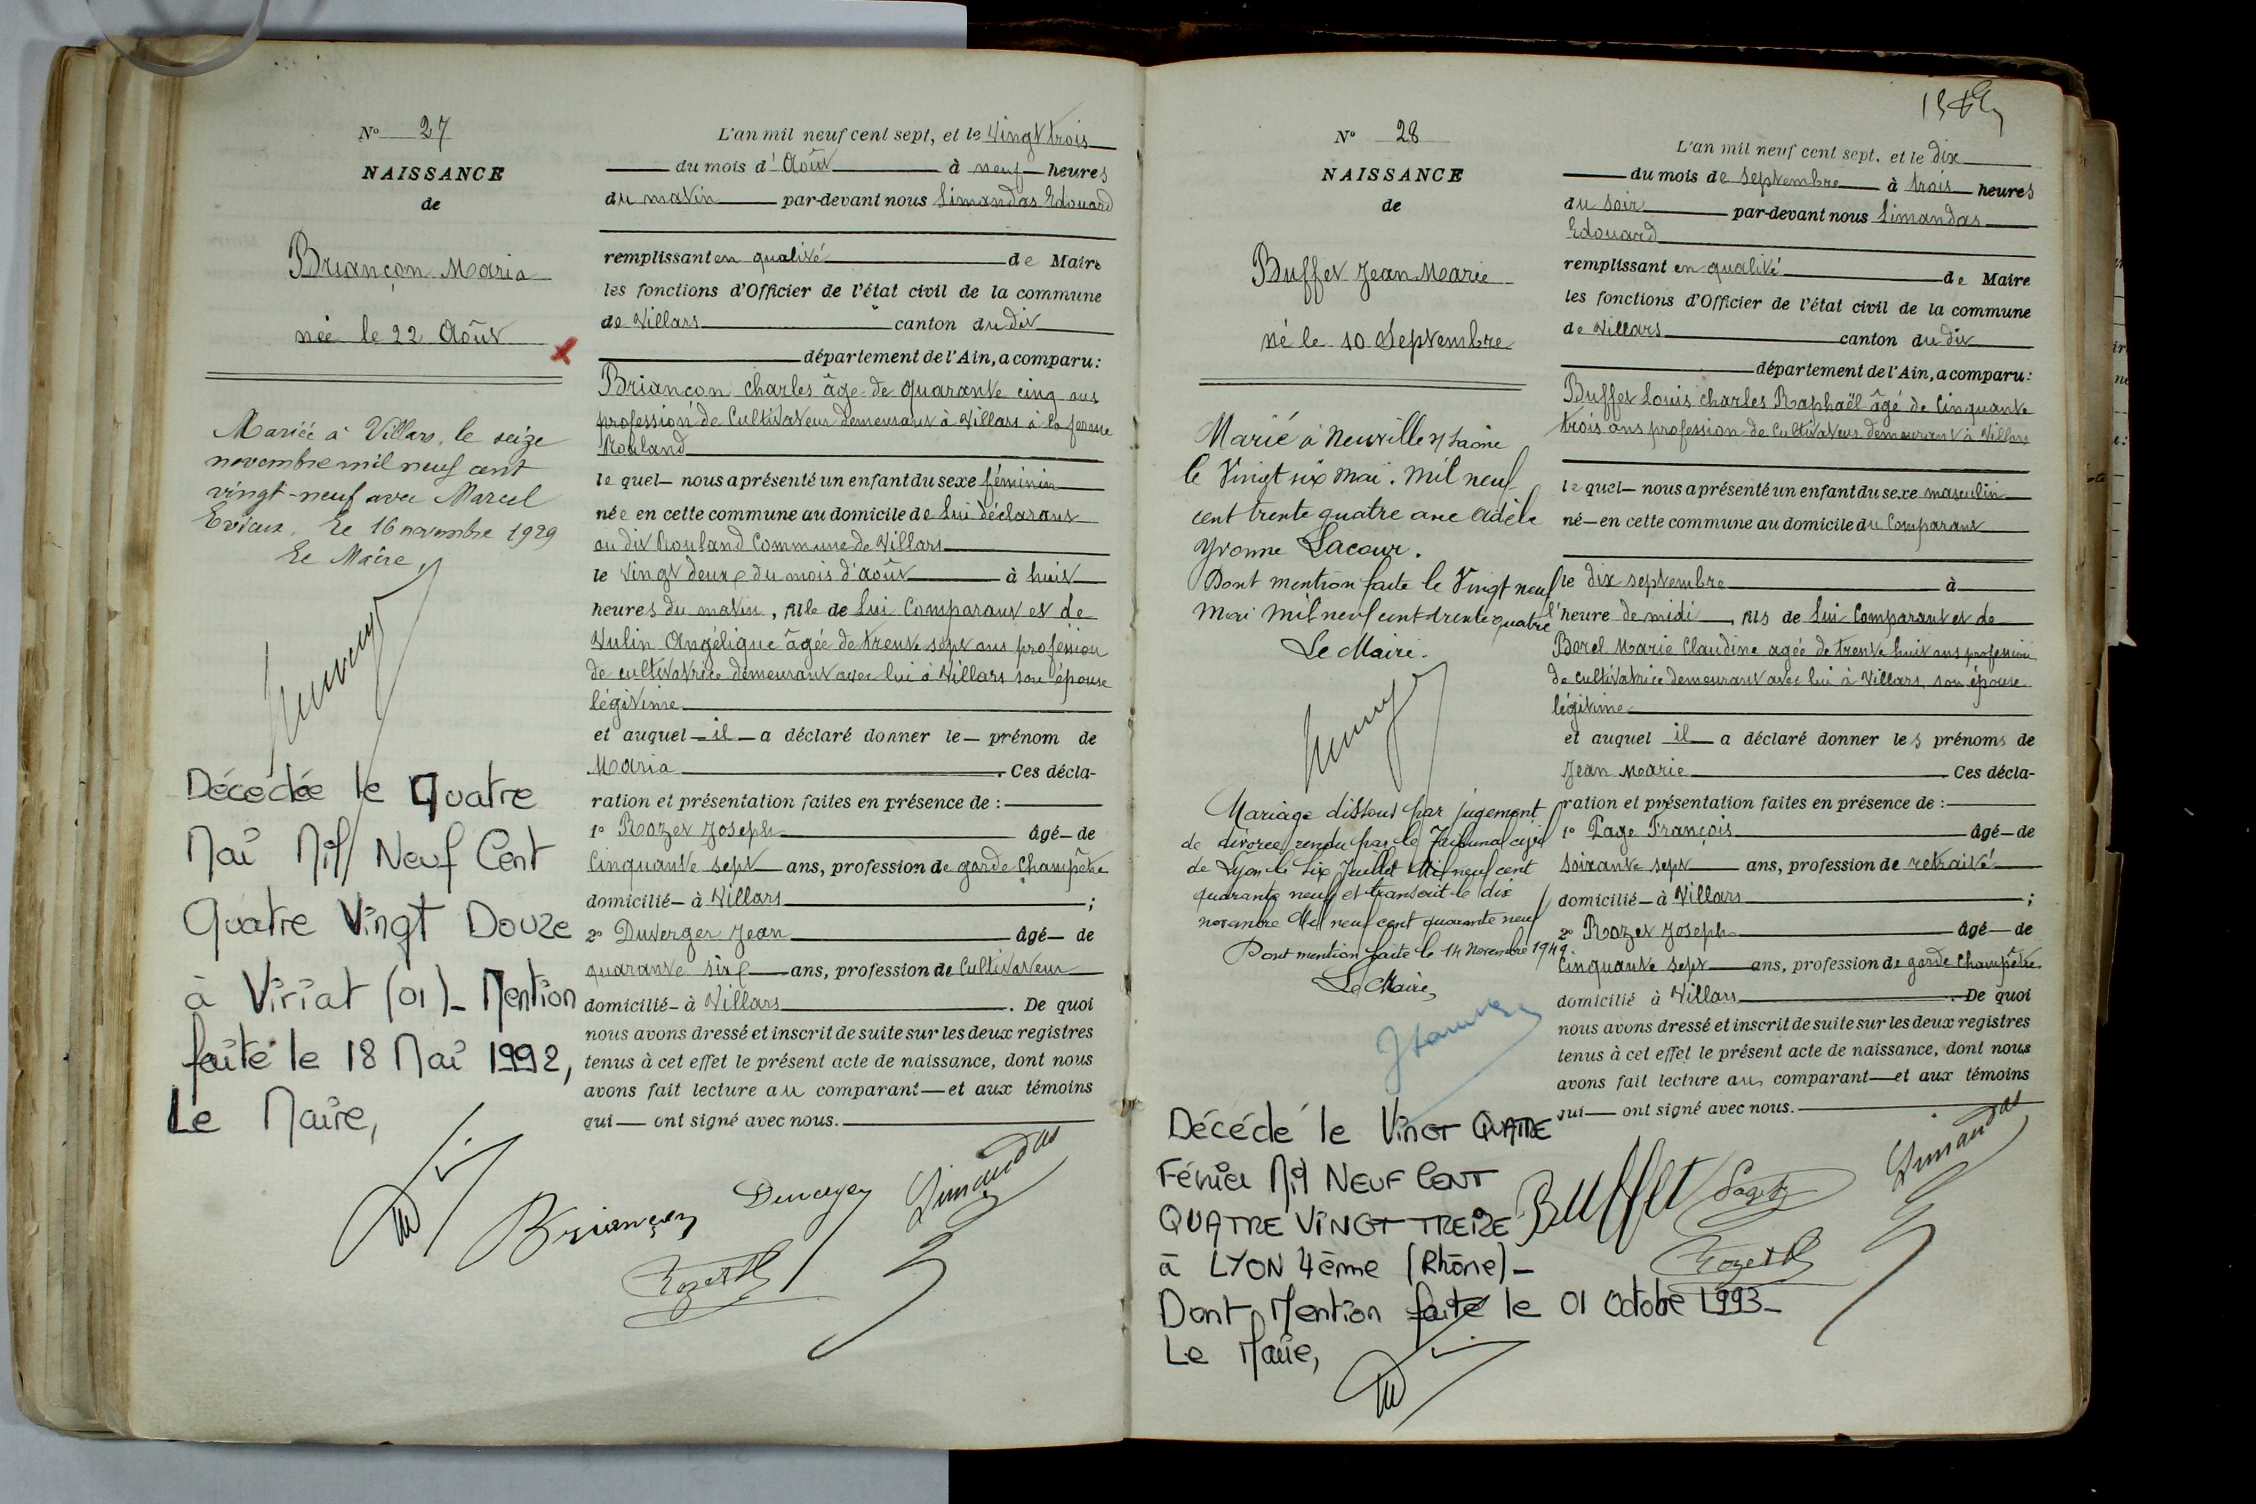 No 27
NAISSANCE
de
Briançon Maria
née le 22 Août
Mariée à Villars, le seize
novembre mil neuf cent
vingt-neuf avec Marcel
Le 16 novembre 1929
Le Maire,
Décédée le Quatre
Mai Mil Neuf Cent
Quatre Vingt Douze
à Viriat (01)_ Mention
faite le 18 Mai 1992,
Le Maire,
L'an mil neuf cent sept, et le vingt trois
du mois d'Août à neuf heures
du matin par-devant nous Limandas Edouard
remplissant en qualité de Maire
les fonctions d'Officier de l'état civil de la commune
de Villars canton du dit
département de l'Ain, a comparu:
Briançon Charles âgé de quarante cinq ans
profession de Cultivateur demeurant à Villars à la ferme
Rouland
le quel nous a présenté un enfant du sexe féminin
née en cette commune au domicile de lui déclarant
au dit Rouland Commune de Villars
le vingt deux du mois d'août à huit
heures du matin, fille de lui Comparant et de
Vulin Angélique âgée de trente sept ans profession
de cultivatrice demeurant avec lui à Villars son épouse
légitime
et auquel il a déclaré donner le prénom de
Maria. Ces décla-
ration et présentation faites en présence de :
1° Rozet Joseph âgé de
Cinquante sept ans, profession de garde Champêtre
domicilié à Villars ;
2° Duverger Jean âgé de
quarante six ans, profession de Cultivateur
domicilié à Villars. De quoi
nous avons dressé et inscrit de suite sur les deux registres
tenus à cet effet le présent acte de naissance, dont nous
avons fait lecture au comparant et aux témoins
qui ont signé avec nous.
Briançon Duverger Limandas
Rozet
No 28
NAISSANCE
de
Buffet Jean Marie
né le 10 Septembre
Marié à Neuville s/ Saône
le Vingt six mai. Mil neuf
cent trente quatre avec Adèle
Yvonne Lacour.
Dont mention faite le Vingt neuf
Mai Mil neuf cent trente quatre
Le Maire.
Mariage dissous par jugement
de divorce rendu par le Tribunal civil
de Lyon le six Juillet Mil neuf cent
quarante neuf et transcrit le dix
novembre Mil neuf cent quarante neuf
Dont mention faite le 14 Novembre 1949.
Le Maire,
Décédé le VINGT QUATRE
Février Mil NEUF CENT
QUATRE VINGT TREIZE
à LYON 4ème (Rhône)_
Dont Mention faite le 01 Octobre 1993_
Le Maire,
L'an mil neuf cent sept, et le dix
du mois de septembre à trois heures
du soir par-devant nous Limandas
Edouard
remplissant en qualité de Maire
les fonctions d'Officier de l'état civil de la commune
de Villars canton du dit
département de l'Ain, a comparu:
Buffet Louis Charles Raphaël âgé de Cinquante
trois ans profession de Cultivateur demeurant à Villars
le quel nous a présenté un enfant du sexe masculin
né en cette commune au domicile du Comparant
le dix septembre à
l'heure de midi, fils de lui Comparant et de
Borel Marie Claudine agée de trente huit ans profession
de cultivatrice demeurant avec lui à Villars, son épouse
légitime
et auquel il a déclaré donner les prénoms de
Jean Marie Ces décla-
ration et présentation faites en présence de :
1° Page François âgé de
soixante sept ans, profession de retraité
domicilié à Villars ;
2° Rozet Joseph âgé de
Cinquante sept ans, profession de garde Champêtre
domicilié à Villars. De quoi
nous avons dressé et inscrit de suite sur les deux registres
tenus à cet effet le présent acte de naissance, dont nous
avons fait lecture au comparant et aux témoins
qui ont signé avec nous.
Buffet Page Limandas
Rozet